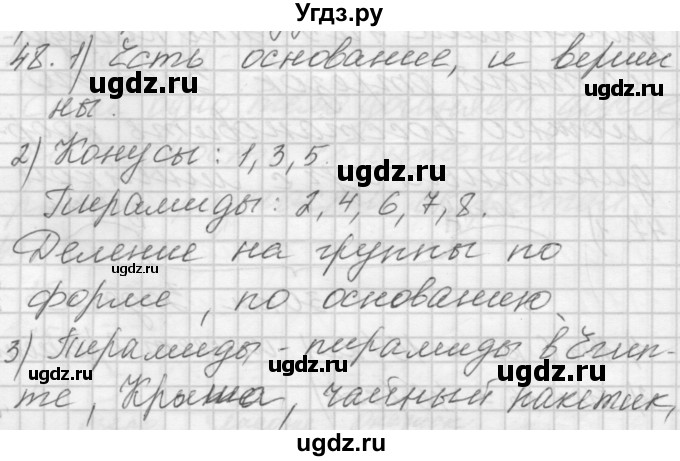 Угдз.ру
48. 1) Есть основание, и верши
ugdz.ru ugdz.ru
ны.
2) Конусы: 1, 3, 5.
ugdz.ru
Пирамиды: 2, 4, 6, 7, 8.
ugdz.ru
Деление на группы по
ugdz.ru ugdz.ru
форме, по основанию
ugdz.ru
3) Пирамиды - пирамиды в Егип-
ugdz.ru ugdz.ru
те, Крыша, чайный пакетик,
ugdz.ru